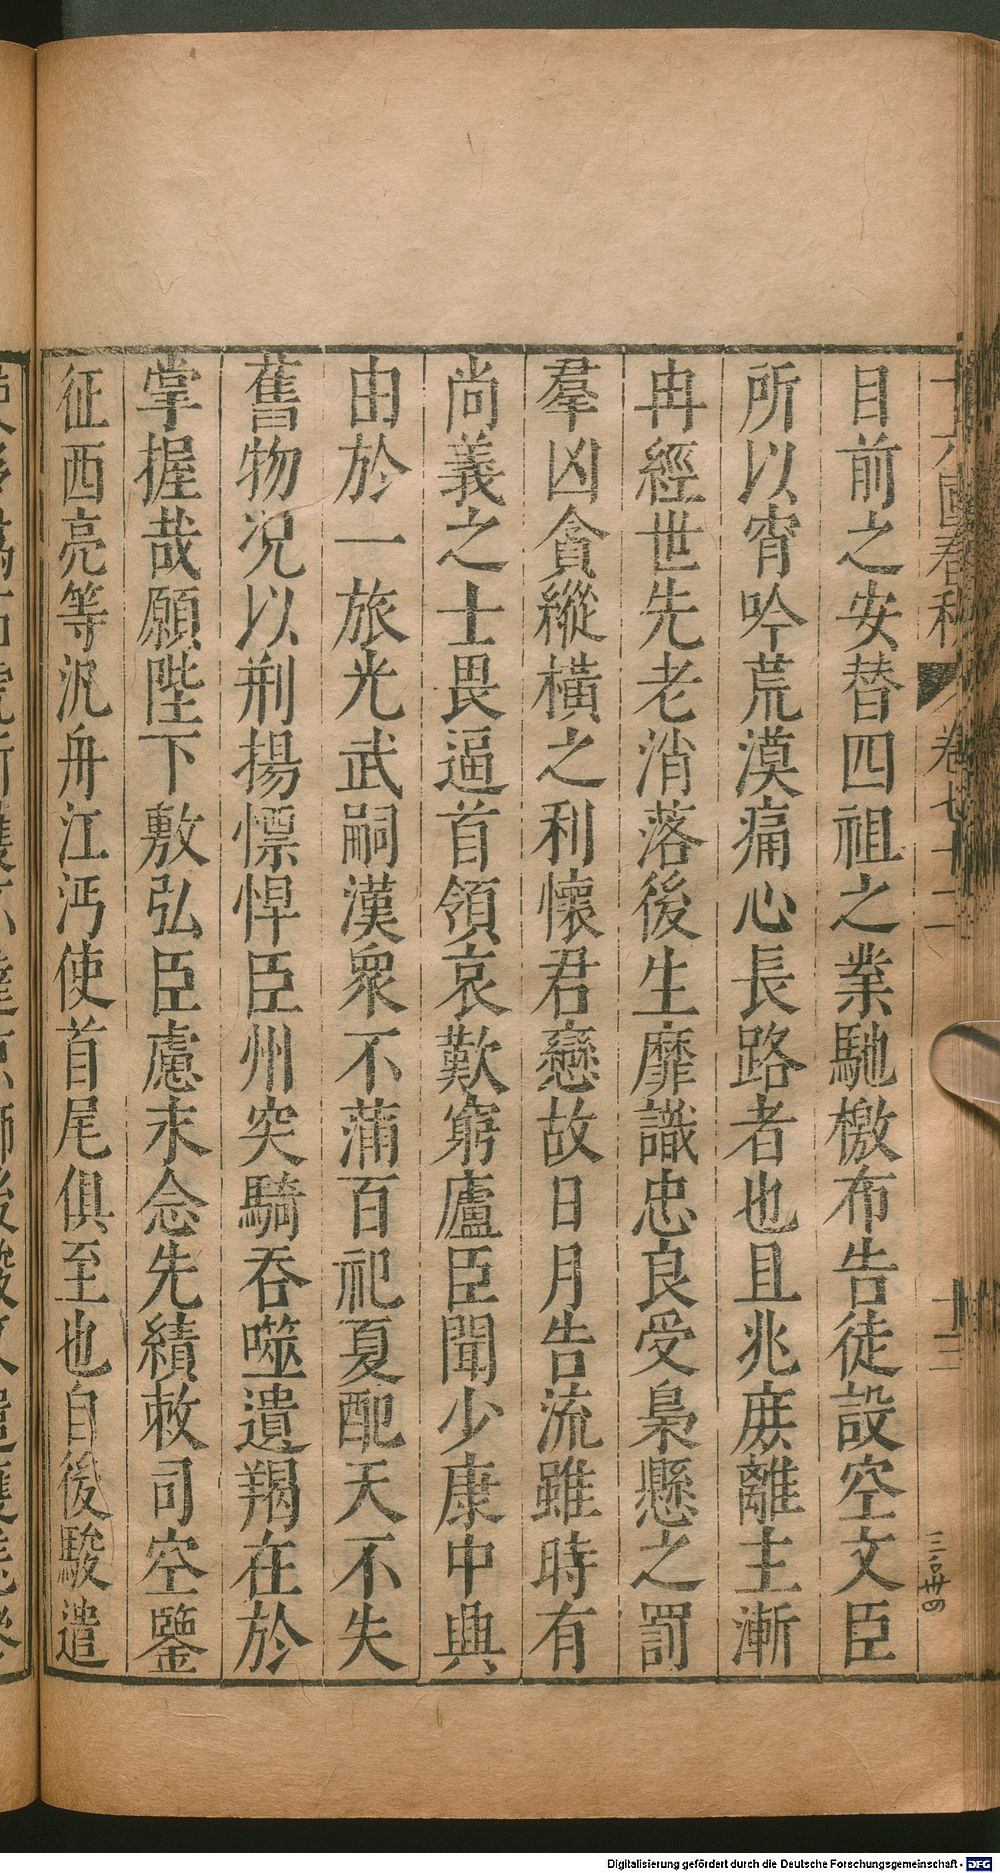 十六國春秋 卷七十二 十三
目前之安替四祖之業馳檄布告徒設空文臣
所以宵吟荒漠痛心長路者也且兆庶離主漸
冉經世先老消落後生靡識忠良受梟懸之罰
羣凶貪縱橫之利懷君戀故日月告流雖時有
尚義之士畏逼首領哀歎窮廬臣聞少康中興
由於一旅光武嗣漢衆不蒲百祀夏配天不失
舊物況以荆揚慓悍臣州突騎吞噬遺羯在於
掌握哉願陛下敷弘臣慮末念先績敕司空鑒
征西亮等汎舟江沔使首尾俱至也自後駿遣
Digitalisierung gefördert durch die Deutsche Forschungsgemeinschaft - DFG